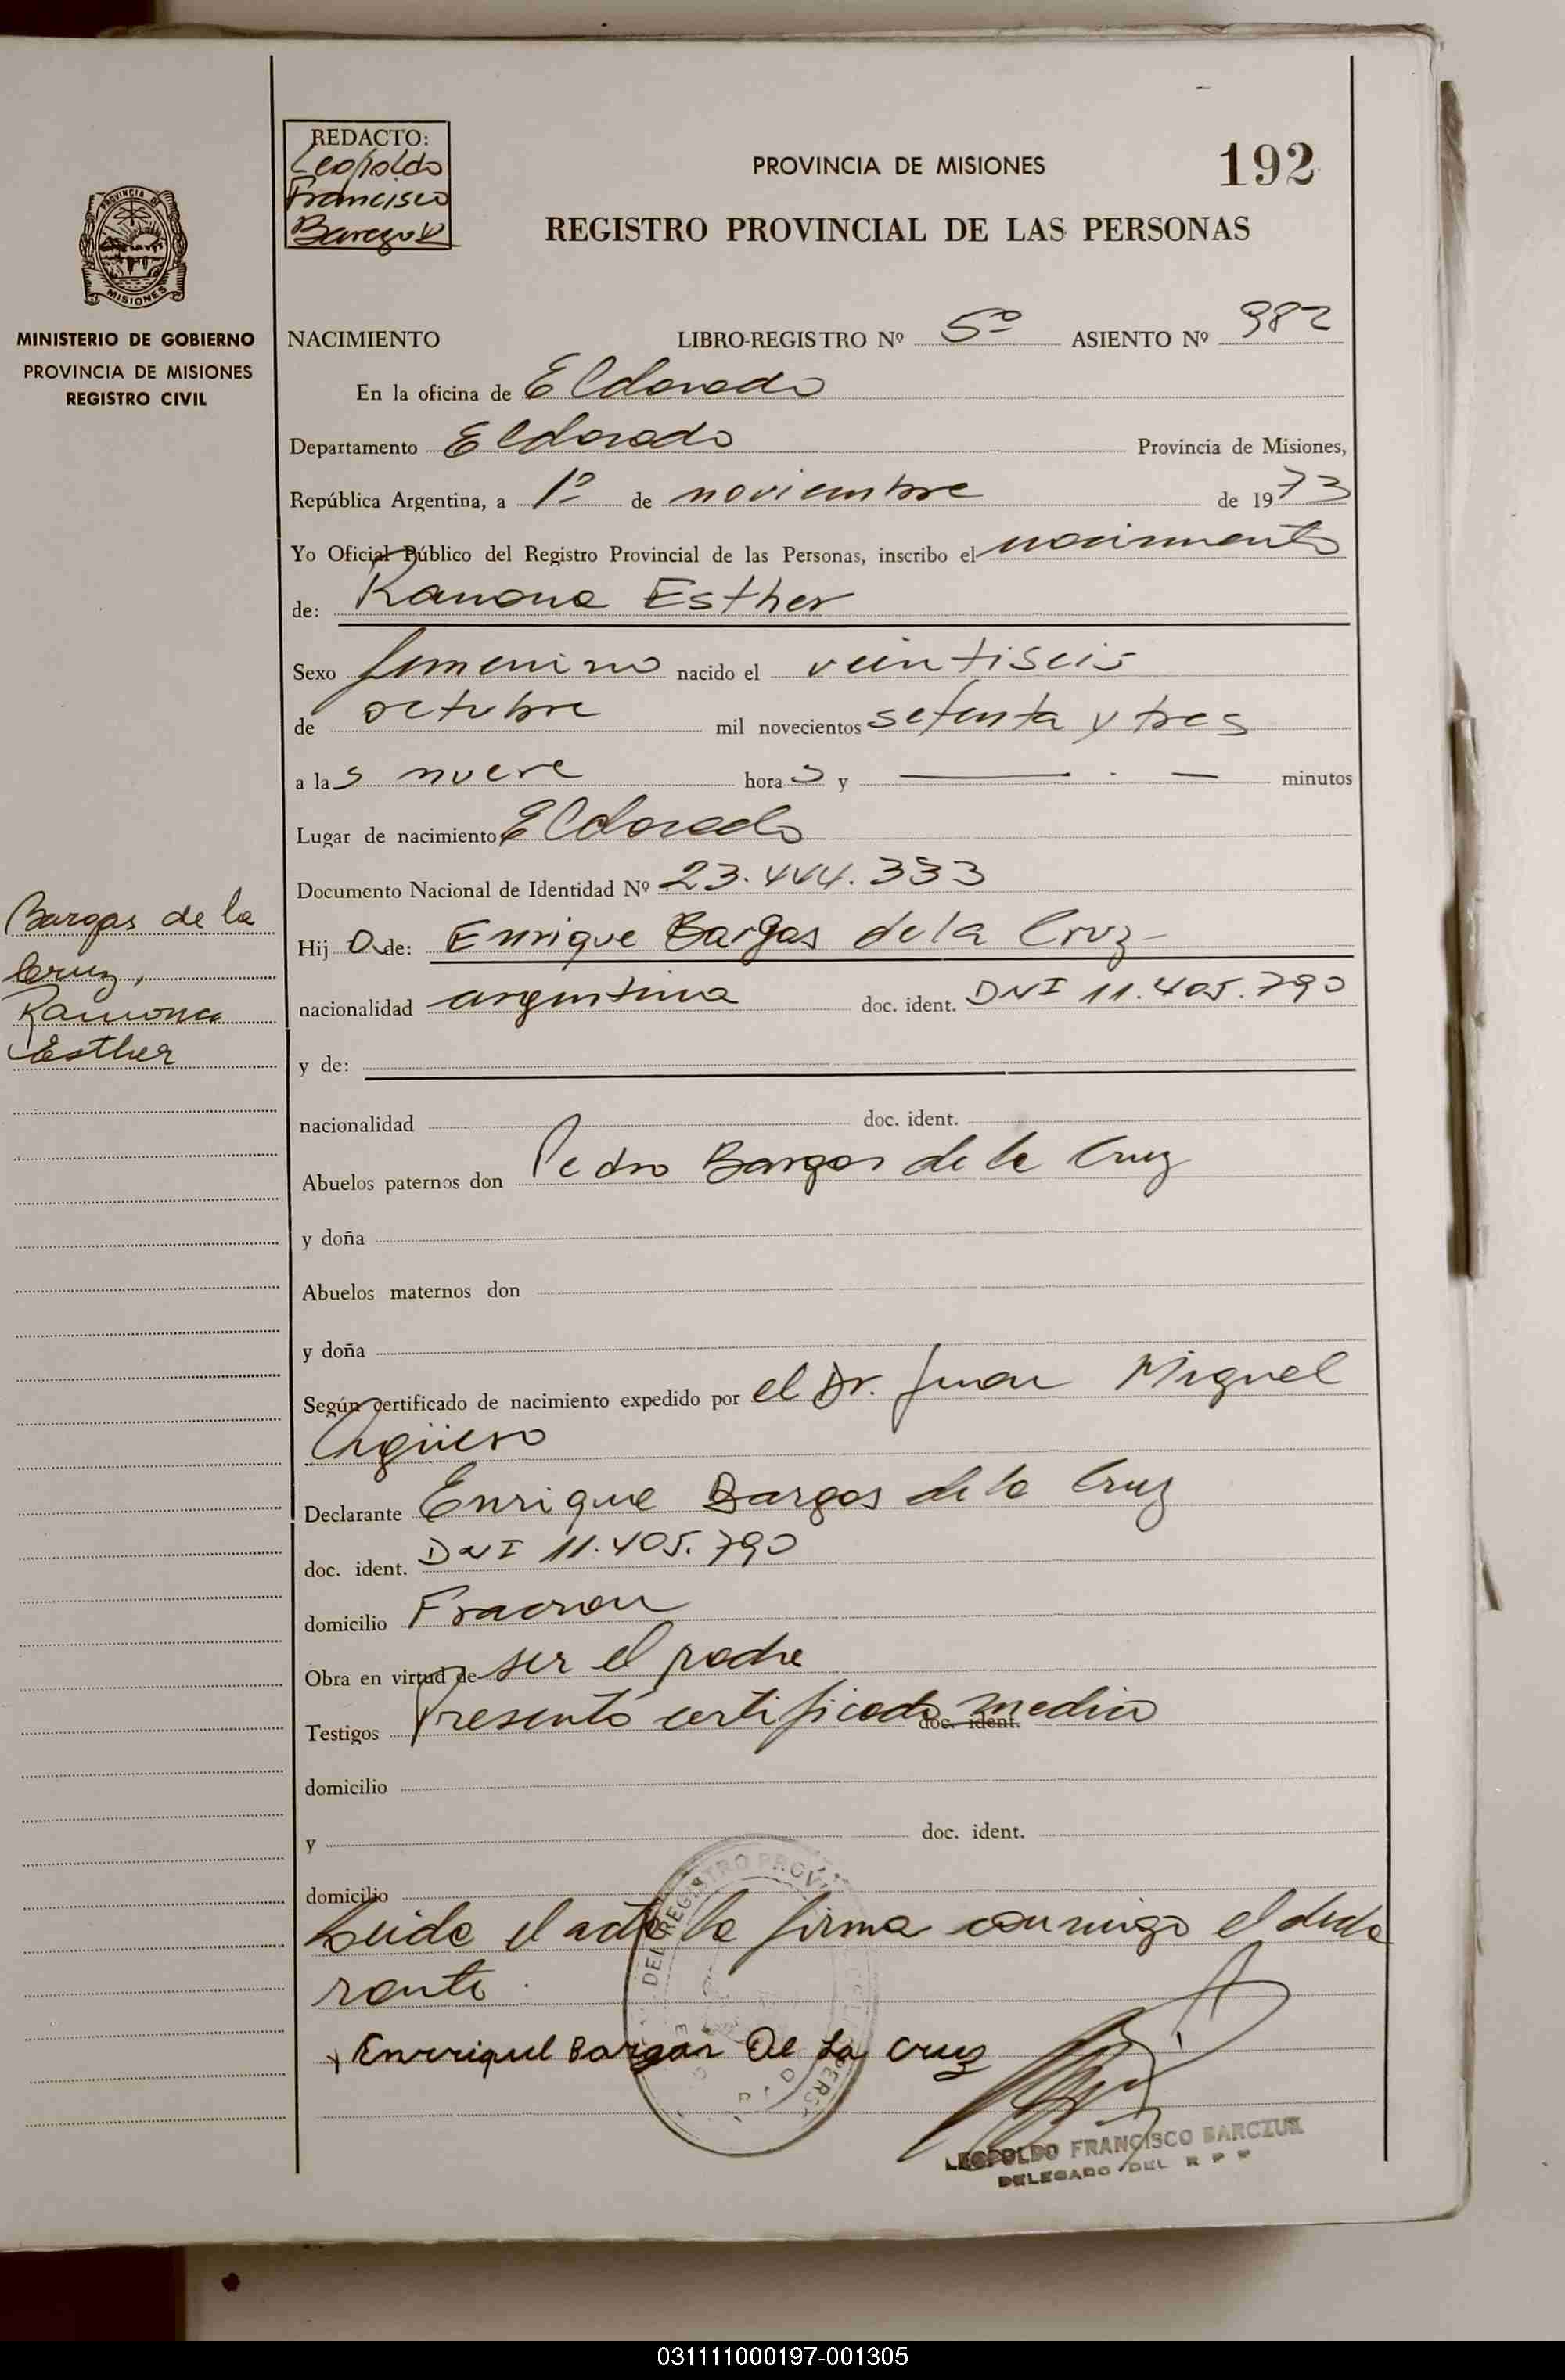 REDACTO:
Leopoldo
Francisco
Barczuk
PROVINCIA DE MISIONES
192
REGISTRO PROVINCIAL DE LAS PERSONAS
PROVINCIA
MISIONES
MINISTERIO DE GOBIERNO
PROVINCIA DE MISIONES
REGISTRO CIVIL
NACIMIENTO LIBRO-REGISTRO Nº 5º ASIENTO Nº 982
En la oficina de Eldorado
Departamento Eldorado Provincia de Misiones,
República Argentina, a 1º de noviembre de 1973
Yo Oficial Público del Registro Provincial de las Personas, inscribo el nacimiento
de: Ramona Esther
Sexo femenino nacido el veintiseis
de octubre mil novecientos setenta y tres
a las nueve horas y minutos
Lugar de nacimiento Eldorado
Documento Nacional de Identidad Nº 23.444.333
Bargas de la
Cruz,
Ramona
Esther
Hij a de: Enrique Bargas de la Cruz
nacionalidad argentina doc. ident. DNI 11.405.790
y de:
nacionalidad doc. ident.
Abuelos paternos don Pedro Bargas de la Cruz
y doña
Abuelos maternos don
y doña
Según certificado de nacimiento expedido por el Dr. Juan Miguel
Agüero
Declarante Enrique Bargas de la Cruz
doc. ident. DNI 11.405.790
domicilio Fracran
Obra en virtud de ser el padre
Testigos Presentó certificado medico doc. ident.
domicilio
y doc. ident.
domicilio
Leida el acta la firma conmigo el decla
rante.
Enrriquel Bargas De La Cruz
DEL REGISTRO PROVI
LEOPOLDO FRANCISCO BARCZUK
DELEGADO DEL R P P
031111000197-001305